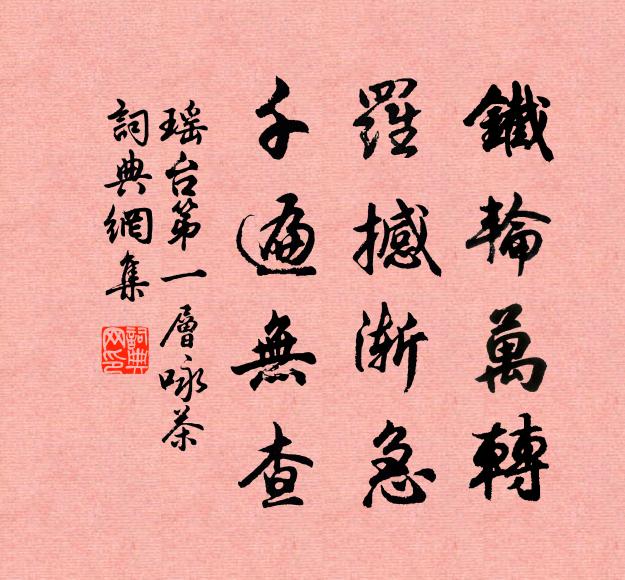 鐵輪萬轉
羅撼漸急
千遍無查
瑶台第一層咏茶
詞典網集
詞典
网印